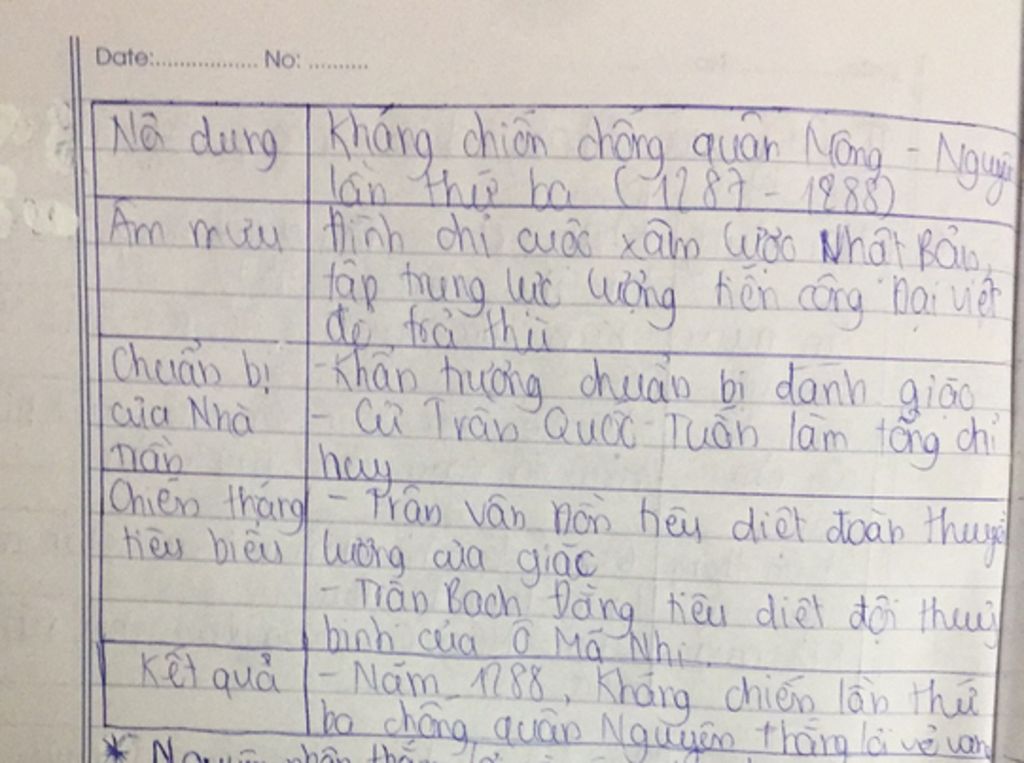 Date:................. No: ..........
Nô dung
Kháng chiến chống quân Mông - Nguyê
lần thứ ba (1287 - 1288)
Âm mưu
Đình chỉ cuộc xâm lược Nhật Bản,
tập trung lực lượng tiến công Đại Việt
để trả thù
Chuẩn bị
của Nhà
Trần
- Khẩn trương chuẩn bị đánh giặc
- Cử Trần Quốc Tuấn làm tổng chỉ
huy
Chiến thắng
tiêu biểu
- Trận Vân Đồn tiêu diệt đoàn thuyề
lương của giặc
- Trận Bạch Đằng tiêu diệt đội thuỷ
binh của Ô Mã Nhi.
Kết quả
- Năm 1288, Kháng chiến lần thứ
ba chống quân Nguyên thắng lợi vẻ vang
* Nguyên nhân